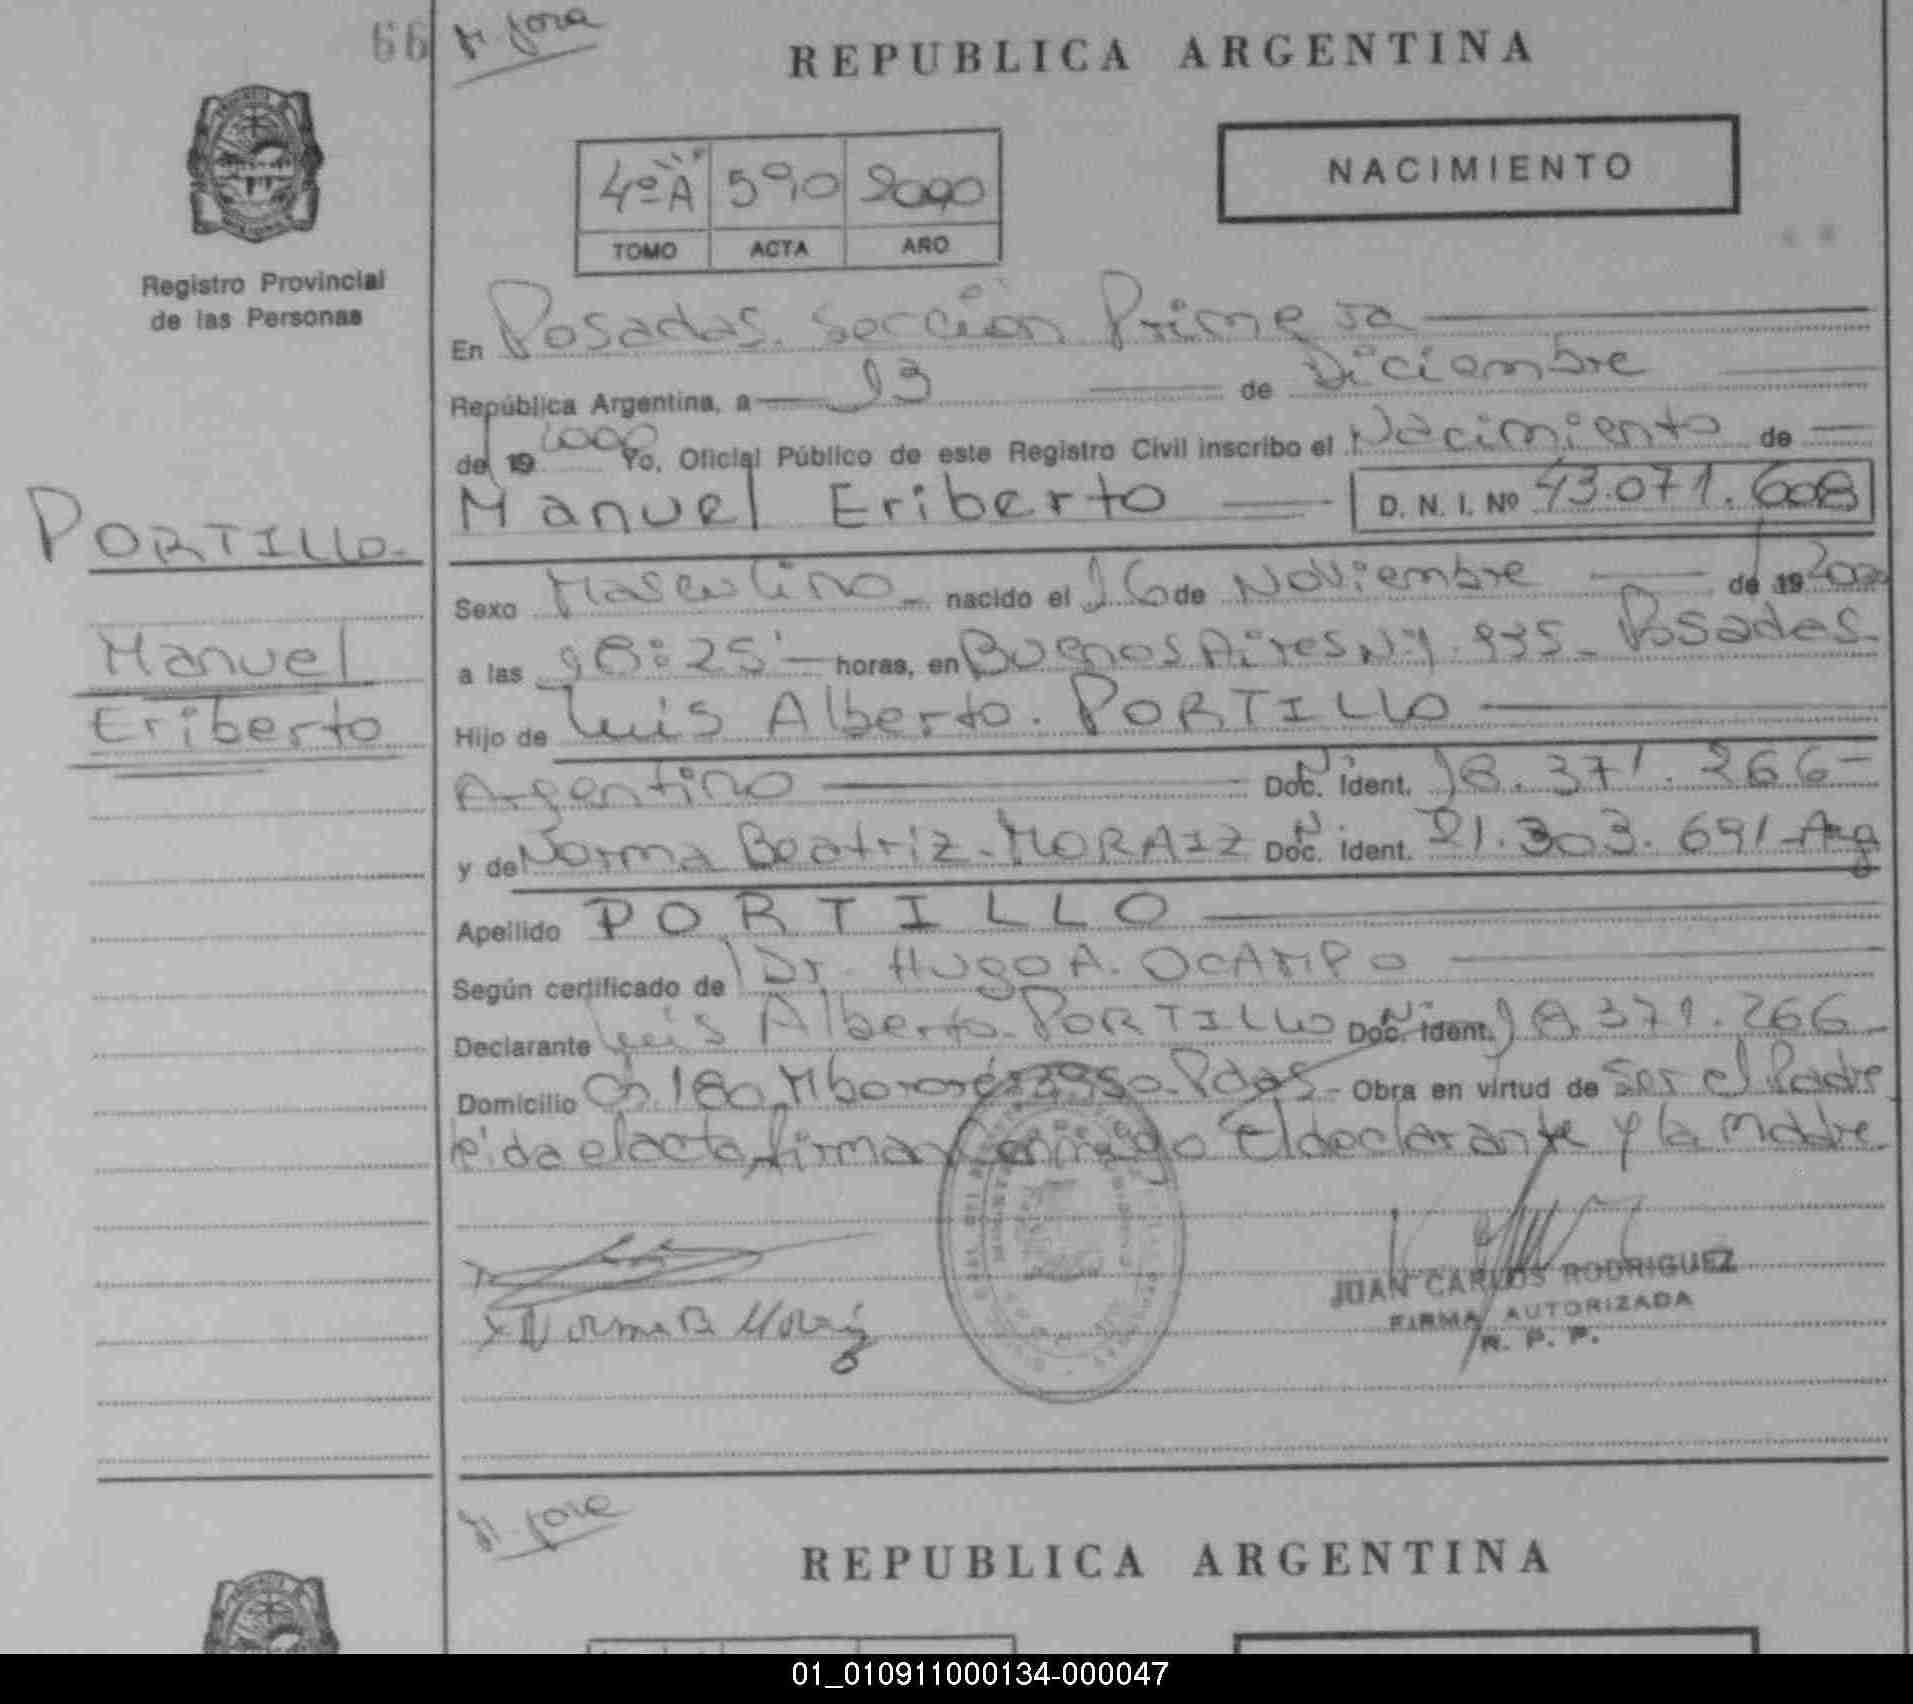 66
REPUBLICA ARGENTINA
4º "A" 590 2000
TOMO ACTA AÑO
NACIMIENTO
Registro Provincial
de las Personas
En Posadas. Sección Primera
República Argentina, a 13 de Diciembre
del 19 2000 Yo, Oficial Público de este Registro Civil inscribo el Nacimiento de
Manuel Eriberto D. N. I. Nº 43.071.608
PORTILLO.
Manuel
Eriberto
Sexo Masculino nacido el 16 de Noviembre del 19 2000
a las 18:25 horas, en Buenos Aires Nº 935 - Posadas
Hijo de Luis Alberto. PORTILLO
Argentino Doc. Ident. 18.371.266
y de Norma Beatriz - MORAIZ Doc. Ident. 21.303.691 Arg
Apellido PORTILLO
Según certificado de Dr. Hugo A. OCAMPO
Declarante Luis Alberto PORTILLO Doc. Ident. 18.371.266
Domicilio Ch. 180 Mbororé 3950 - Pdas - Obra en virtud de Ser el Padre
leída el acta, firman Conmigo El declarante y la madre.
Norma B Moraiz
JUAN CARLOS RODRIGUEZ
FIRMA AUTORIZADA
R. P. P.
REPUBLICA ARGENTINA
01_010911000134-000047